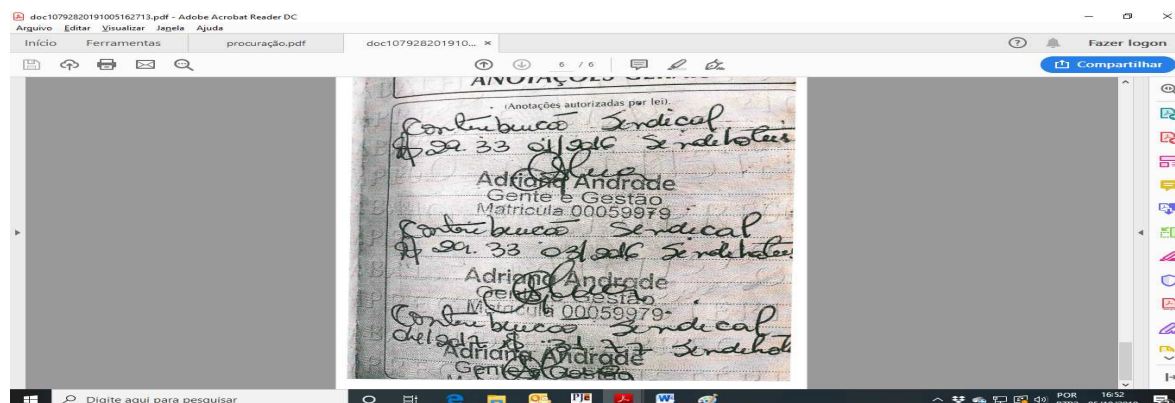 doc10792820191005162713.pdf - Adobe Acrobat Reader DC
Arquivo Editar Visualizar Janela Ajuda
Início Ferramentas procuração.pdf doc107928201910... × Fazer logon
6 / 6 Compartilhar
ANOTAÇÕES
(Anotações autorizadas por lei).
Contribuição Sindical
29.33 01/2016 Sindehoteis
Adriana Andrade
Gente e Gestão
Matricula 00059979
Contribuição Sindical
29.33 03/2016 Sindehoteis
Adriana Andrade
Gente e Gestão
Matricula 00059979
Contribuição Sindical
Adriana Andrade
Gente e Gestão
Digite aqui para pesquisar POR 16:52